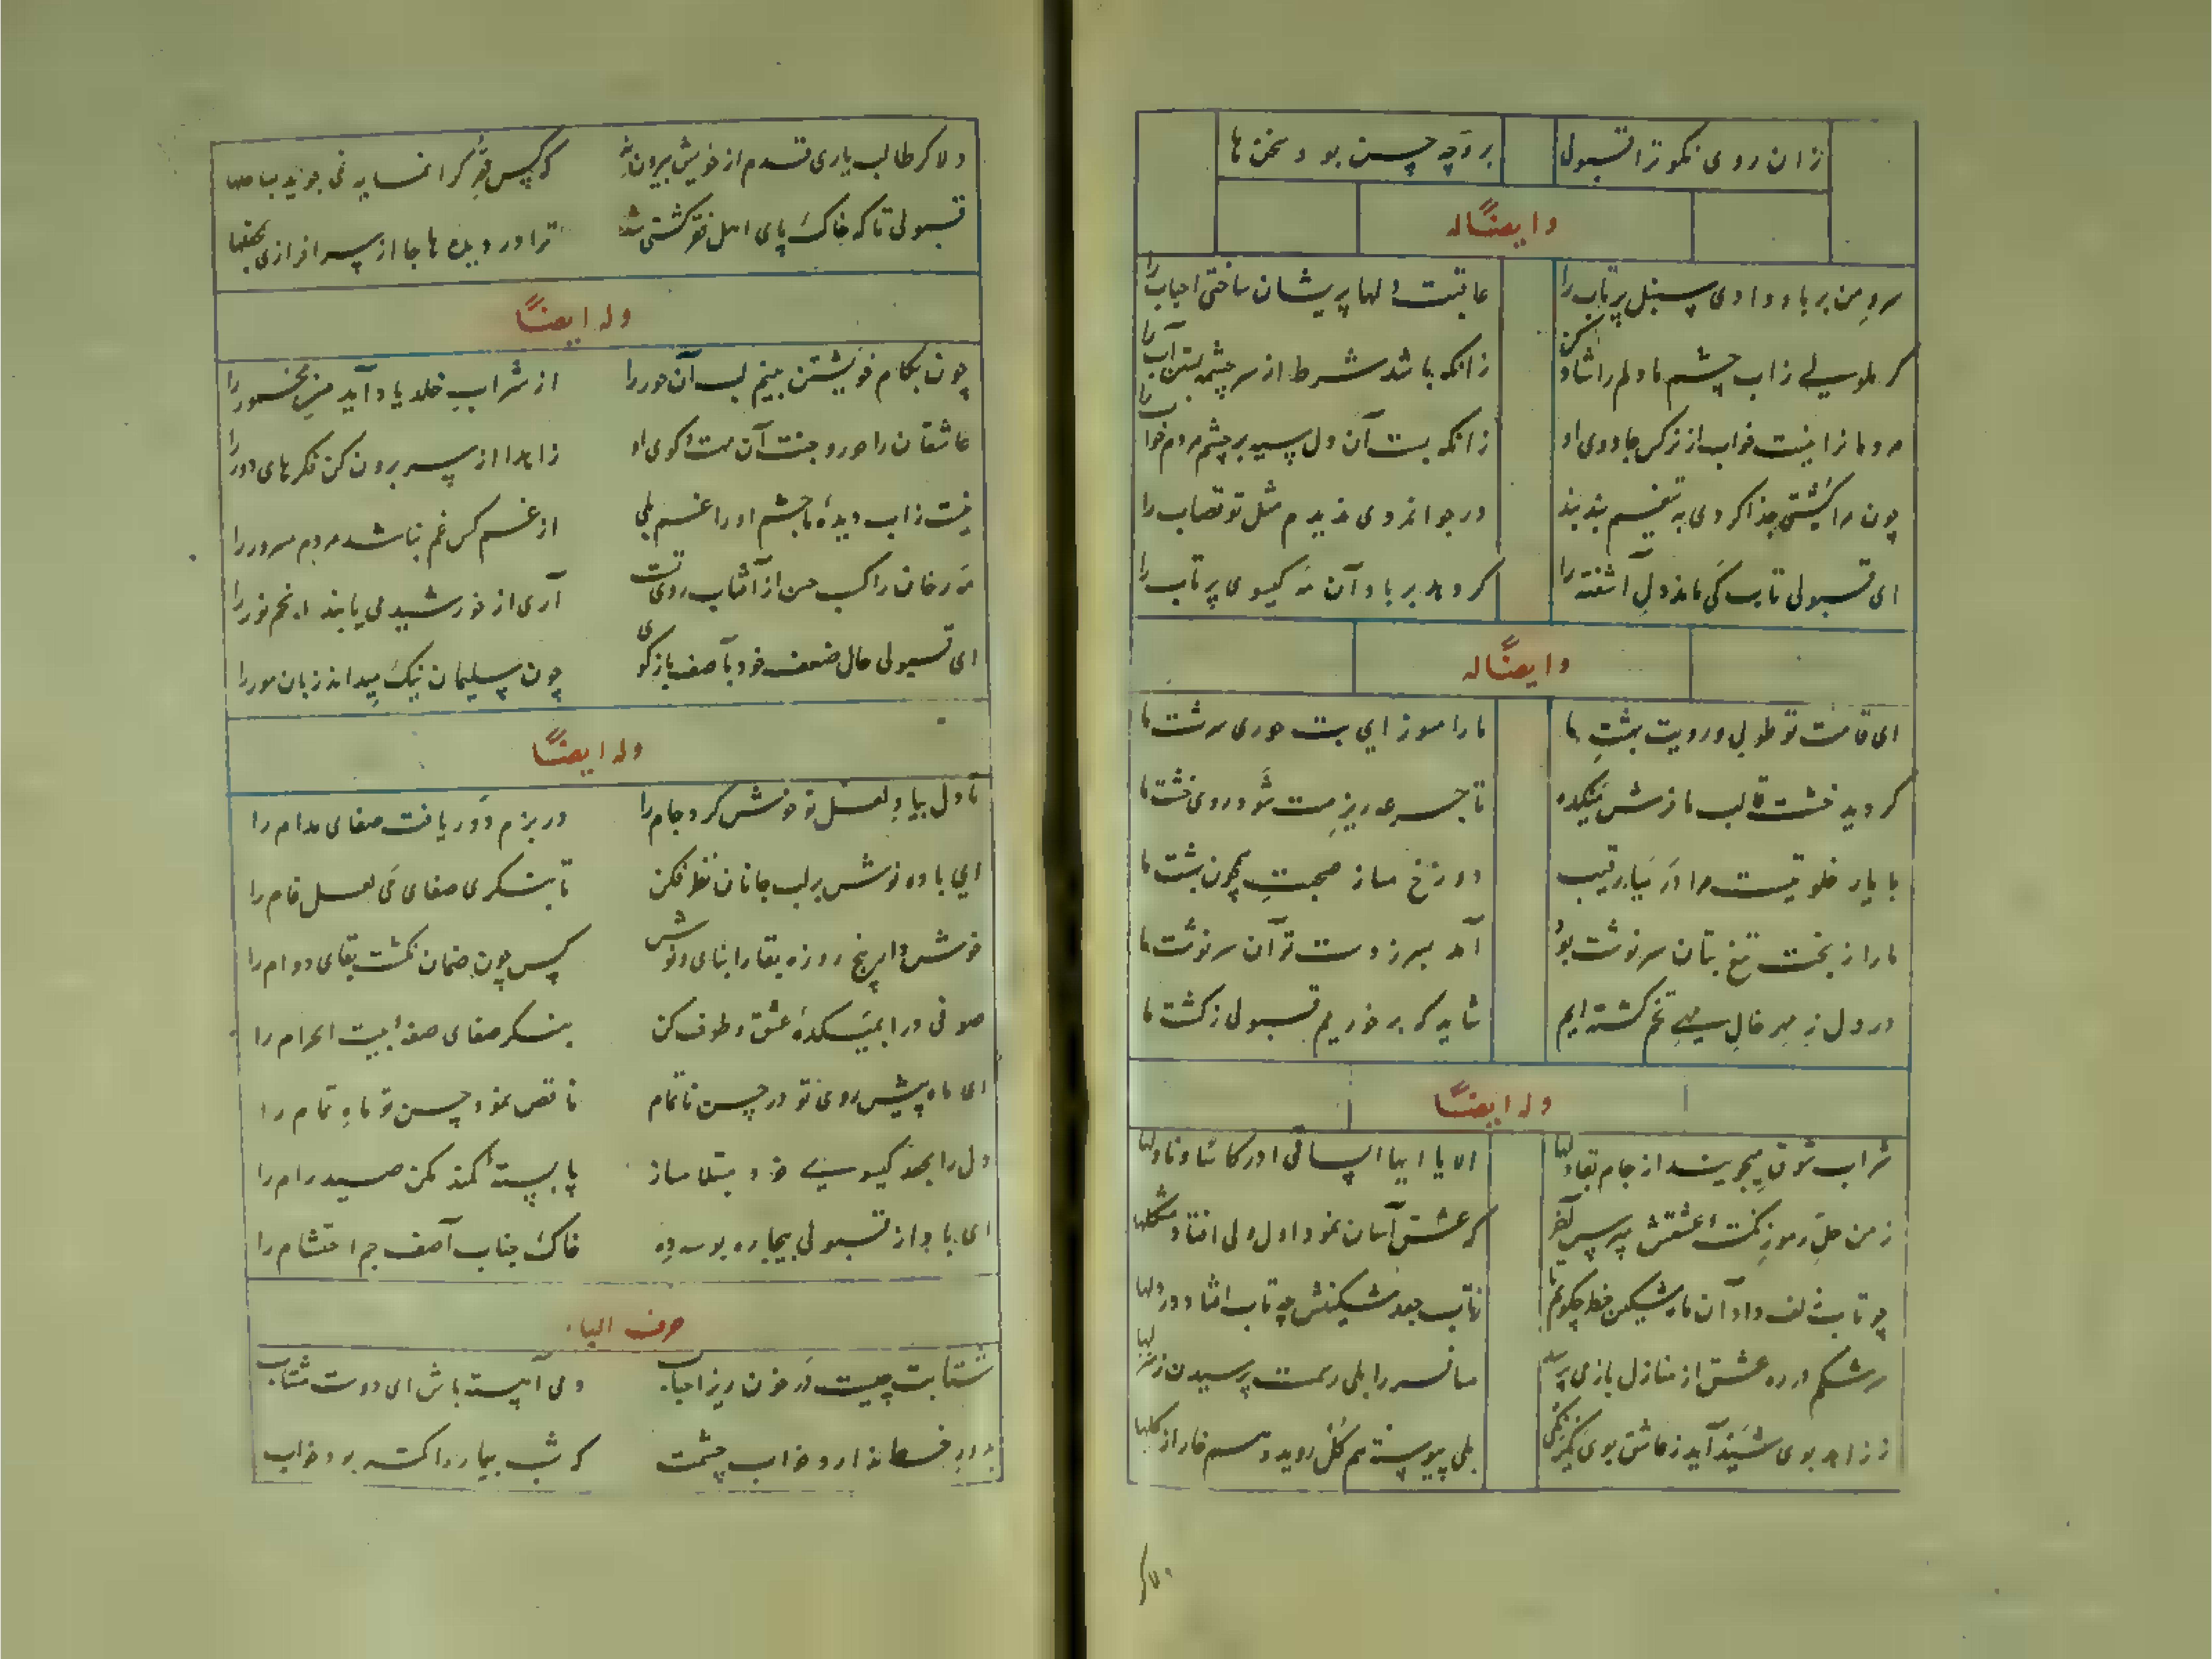 زان روی نکو ترا قبولی بر وجه حسن بود سخن ها
وایضًا له
سرو من بر باد دادی سنبل پرتاب را عاقبت دلها پریشان ساختی احباب را
کر ملولی زاب چشم ما دلم را شاد کن زانکه باشد شرط از سر چشمه بستن آب را
خواب از نرکس جادوی او زانکه بست آن دل سیه بر چشم مردم خواب را
چون مرا کشتی جدا کردی به تیغم بند بند در جوانمردی ندیدم مثل تو قصاب را
ای قبولی تاب کی ماند دل آشفته را کر دهد بر باد آن مه کیسوی پرتاب را
وایضًا له
ای قامت تو طوبی و رویت بهشت ما ما را مسوز ای بت حوری سرشت ما
کردید خشت قالب ما فرش میکده تا جرعه ریز مست شود روی خشت ما
با یار خلوتیست مرا در میا رقیب دوزخ مساز صحبت همچون بهشت ما
ما را ز بخت تیغ بتان سرنوشت بود آمد بسر ز دست تو آن سرنوشت ما
در دل ز مهر خال سیه تخم کشته ایم شاید که بر خوریم قبولی ز کشت ما
وله ایضًا
شراب شوق میجویند از جام بقا دلها الا یا ایها الساقی ادر کاسًا و ناولها
ز من حل رموز نکته عشقش بپرس آخر که عشق آسان نمود اول ولی افتاد مشکلها
چو تاب زلف داد آن ماه مشکین خط چکویم تا ز تاب جعد مشکینش چه تاب افتاد در دلها
سرشکم در ره عشق از منازل بازمی پرسد مسافر را بلی رسمست پرسیدن ز منزلها
ز زاهد بوی شید آید ز عاشق بوی یکرنکی بلی پیوسته هم کل روید و هم خار از کلها
دلا کر طالب یاری قدم از خویش بیرون نه که کس در کرانمایه نمی جوید بساحلها
قبولی تا که خاک پای اهل فقر کشتی شد ترا در دیده ها جا از سرافرازی بمحفلها
وله ایضًا
چون بکام خویشتن بینم لب آن حور را از شراب خلد یاد آید من مخمور را
عاشقان را حور و جنت آن مهست و کوی او زاهدا از سر برون کن فکرهای دور را
نیست زاب دیدۀ ما چشم او را غم بلی از غم کس غم نباشد مردم مسرور را
مه رخان را کسب حسن از آفتاب روی تست آری از خورشید می یابند انجم نور را
ای قبولی حال ضعف خود بآصف بازکوی چون سلیمان نیک میداند زبان مور را
وله ایضًا
تا دل بیاد لعل تو خوش کرد جام را در بزم دور یافت صفای مدام را
ای باده نوش بر لب جانان نظر فکن تا بنکری صفای می لعل فام را
خوش دار پنج روزه بقا را بنای و نوش کس چون ضمان نکشت بقای دوام را
صوفی درا بمیکدۀ عشق و طوف کن بنکر صفای صفۀ بیت الحرام را
ای ماه پیش روی تو در حسن ناتمام ناقص نمود حسن تو ماه تمام را
دل را بجعد کیسوی خود مبتلا مساز پا بستۀ کمند مکن صید رام را
ای باد از قبولی بیچاره بوسه ده خاک جناب آصف جم احتشام را
حرف الباء
شتابت چیست در خون ریز احباب دمی آهسته باش ای دوست مشتاب
ندارد خواب چشمت که شب بیمار را کمتر بود خواب